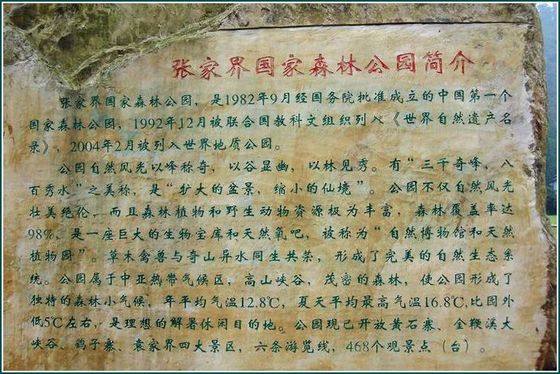 张家界国家森林公园简介
张家界国家森林公园，是1982年9月经国务院批准成立的中国第一个
国家森林公园，1992年12月被联合国教科文组织列入《世界自然遗产名
录》，2004年2月被列入世界地质公园。
公园自然风光以峰称奇，以谷显幽，以林见秀。有“三千奇峰，八
百秀水”之美称，是“扩大的盆景，缩小的仙境”。公园不仅自然风光
壮美绝伦，而且森林植物和野生动物资源极为丰富，森林覆盖率达
98%，是一座巨大的生物宝库和天然氧吧，被称为“自然博物馆和天然
植物园”。草木禽兽与奇山异水同生共荣，形成了完美的自然生态系
统。公园属于中亚热带气候区，高山峡谷，茂密的森林，使公园形成了
独特的森林小气候，年平均气温12.8℃，夏天平均最高气温16.8℃，比园外
低5℃左右，是理想的解暑休闲目的地。公园现已开放黄石寨、金鞭溪大
峡谷、鹞子寨、袁家界四大景区，六条游览线，468个观景点（台）。